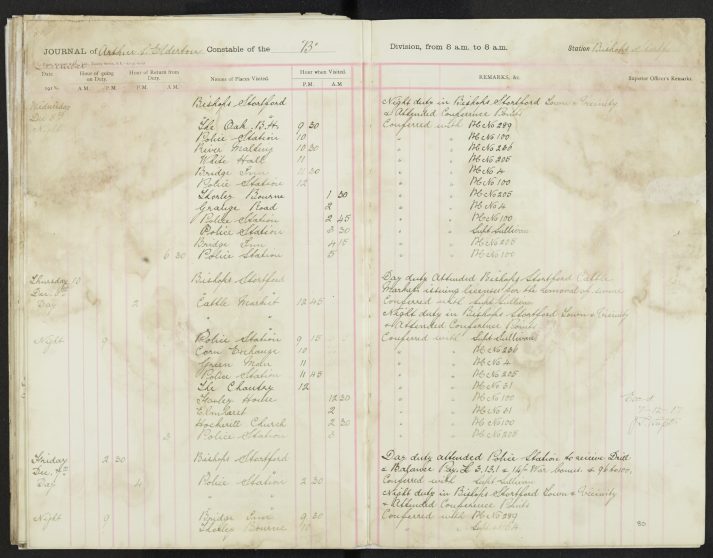 JOURNAL of Arthur S. Elderton Constable of the "B" Division, from 8 a.m. to 8 a.m. Station Bishops Stortford
Date Hour of going on Duty. Hour of Return from Duty. Names of Places Visited. Hour when Visited. REMARKS, &c. Superior Officer's Remarks.
191 A.M. P.M. P.M. A.M. P.M. A.M
Wednesday Bishops Stortford Night duty in Bishops Stortford Town & Vicinity
Dec 5th " & Attended Conference Points
Night The Oak B.H. 9 30 Conferred with PC No 289
Police Station 10 " " PC No 100
River Malting 10 30 " " PC No 236
White Hall 11 " " PC No 205
Bridge Inn 11 30 " " PC No 4
Police Station 12 " " PC No 100
Thorley Bourne 1 30 " " PC No 205
Grange Road 2 " " PC No 4
Police Station 2 45 " " PC No 100
Police Station 3 30 " " Supt Sullivan
Bridge Inn 4 15 " " PC No 205
6 30 Police Station 5 " " PC No 100
Thursday 10 Bishops Stortford Day duty Attended Bishops Stortford Cattle
Dec 6th " Market issuing licenses for the removal of swine
Day 2 Cattle Market 12 45 Conferred with Supt Sullivan
" Night duty in Bishops Stortford Town & Vicinity
" & Attended Conference Points
Night 9 Police Station 9 15 Conferred with Supt Sullivan
Corn Exchange 10 " " PC No 236
Green Man 11 " " PC No 4
Police Station 11 45 " " PC No 205
The Chantry 12 " " PC No 31
House 12 30 " " PC No 100
2 " " PC No 31
Hockerill Church 2 30 " " PC No 100
3 Police Station 3 " " PC No 205
7-12-17
Friday 2 30 Bishops Stortford Day duty attended Police Station to receive Drill
Dec. 7th " & Balance Pay. £3.13.1 & 14th War bonus
Day 4 Police Station 2 30 Conferred with Supt Sullivan
" Night duty in Bishops Stortford Town & Vicinity
" & Attended Conference Points
Night 9 Bridge Inn 9 30 Conferred with PC No 289
Thorley Bourne 10
80